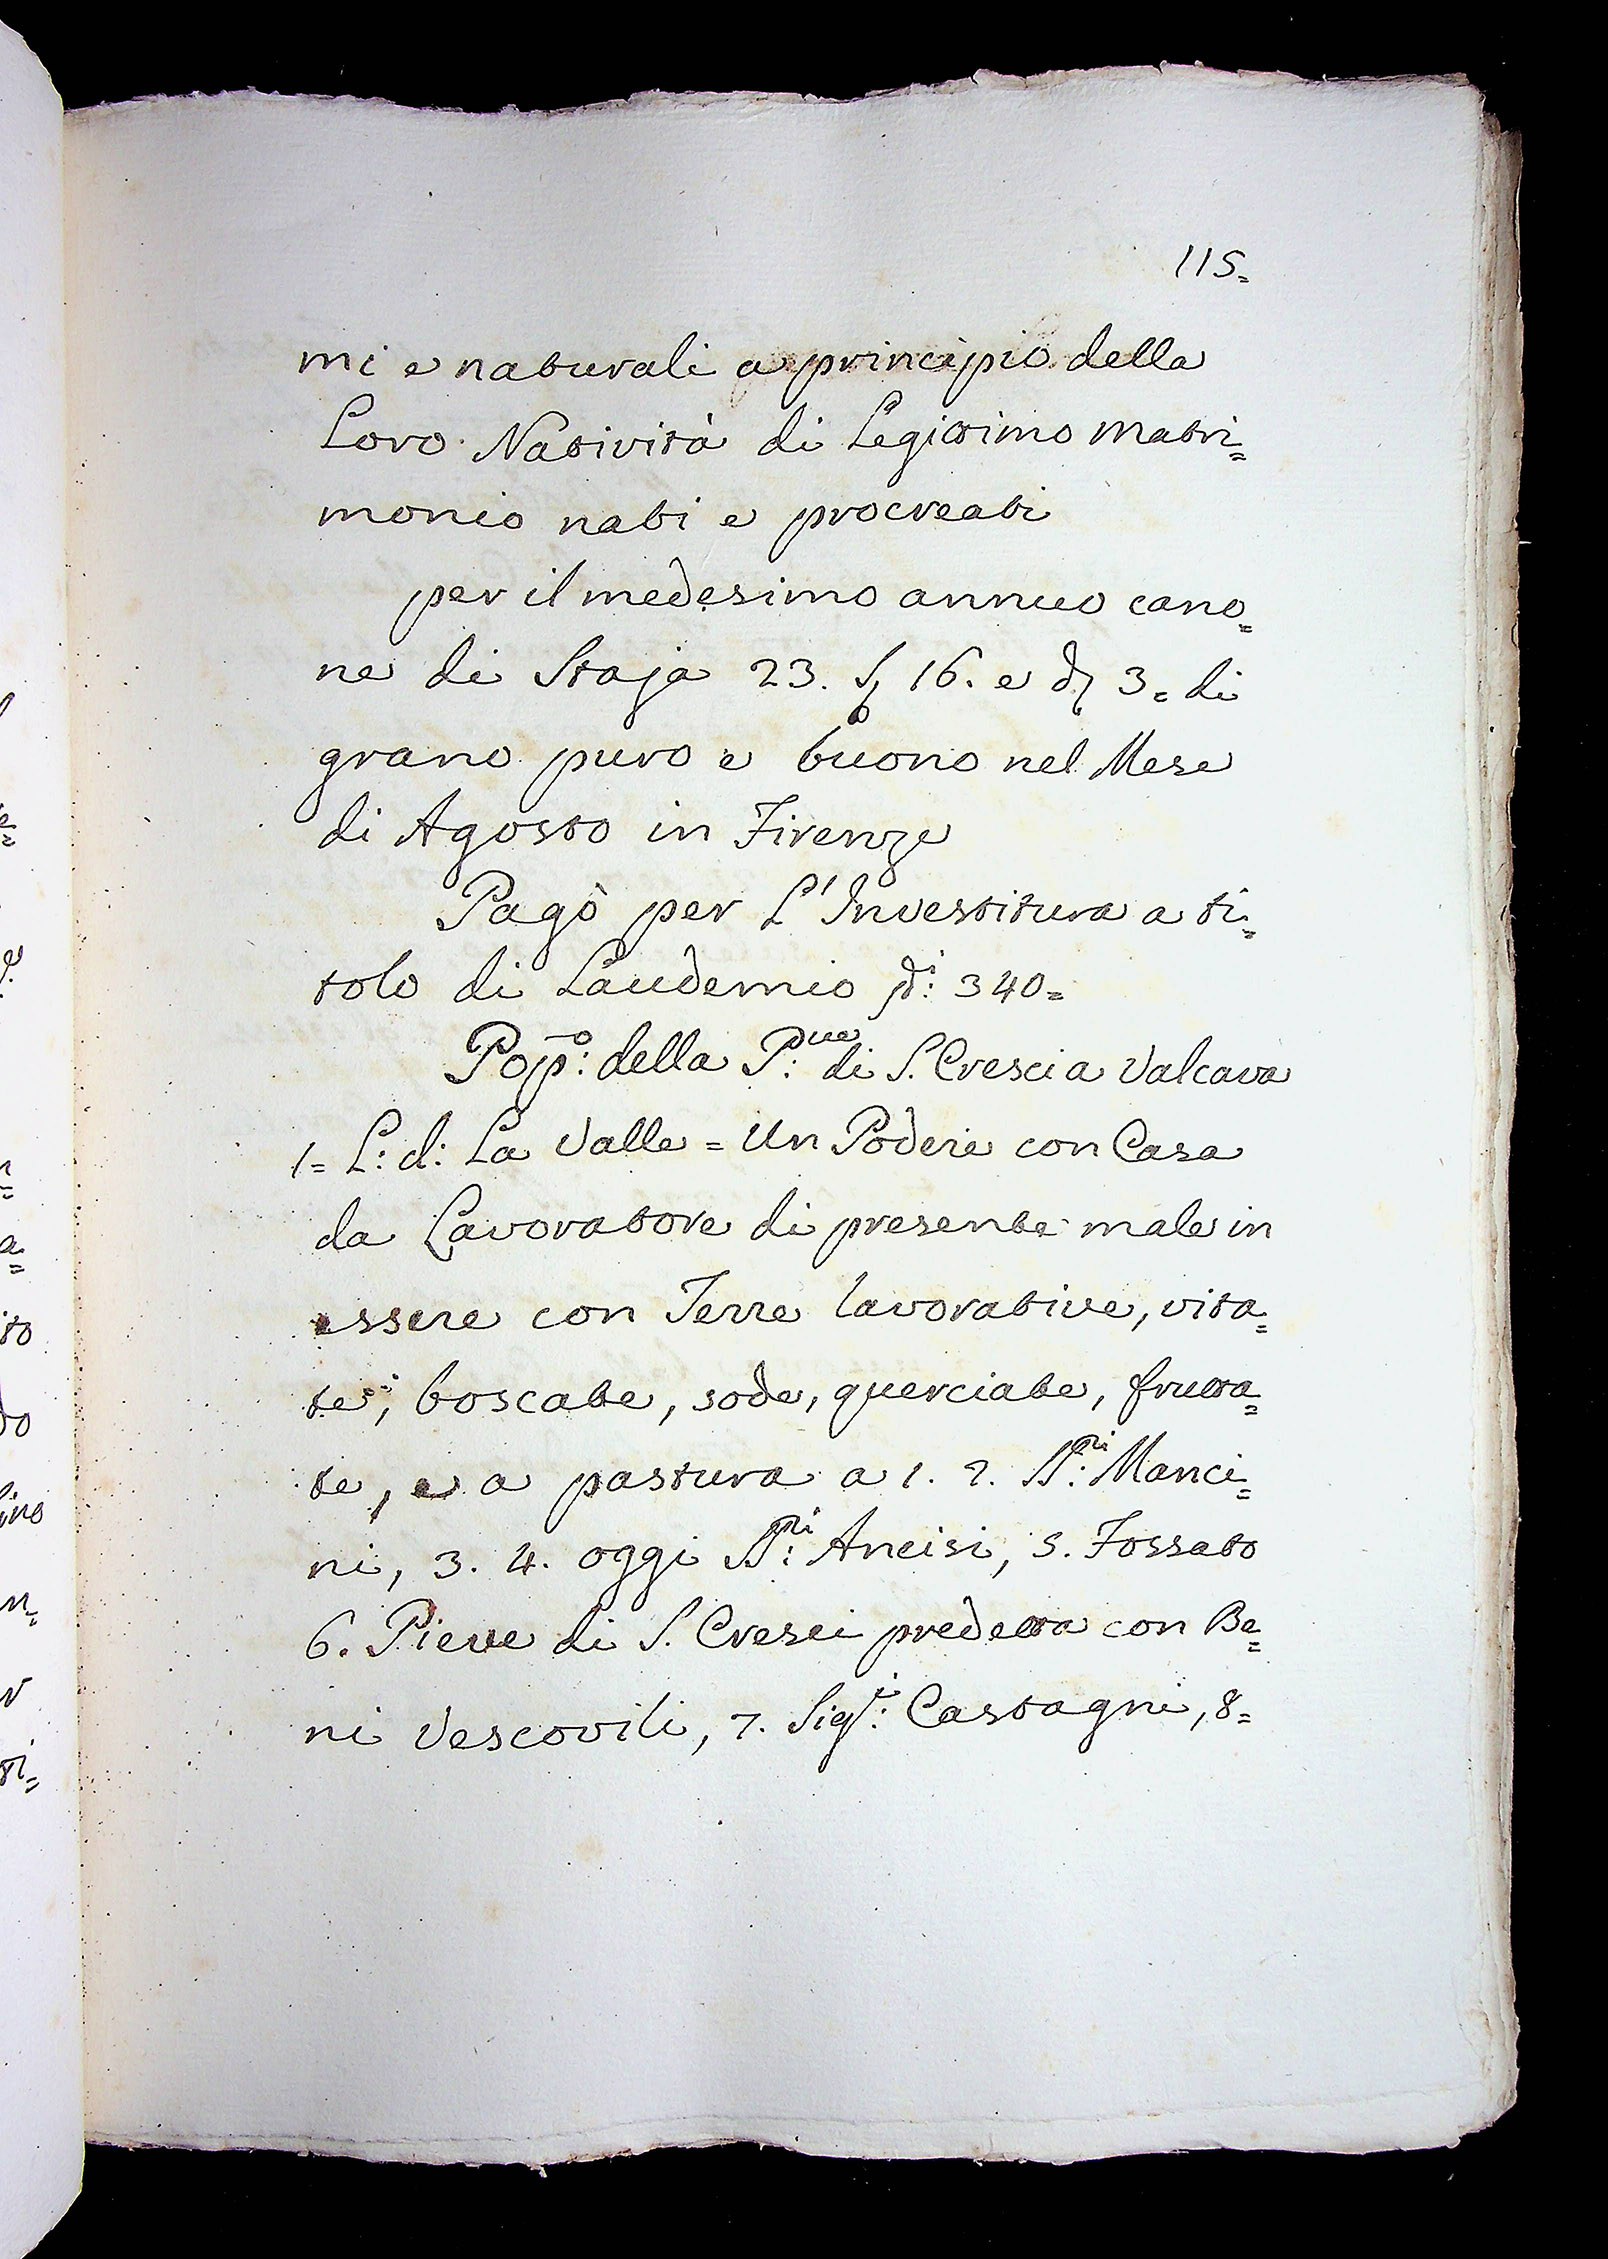 115=
mi e naturali a principio della
Loro Natività di Legittimo matri=
monio nati e procreati
per il medesimo annuo cano=
ne di Staja 23. S 16. e d 3= di
grano puro e buono nel Mese
di Agosto in Firenze
Pagò per L'Investitura a ti=
tolo di Laudemio di: 340=
Pop:o della P:ve di S. Cresci a Valcava
1= L: d: La Valle = Un Podere con Casa
da Lavoratore di presente male in
essere con Terre lavorative, vita=
te, boscate, sode, querciate, frutta=
te, e a pastura a 1. 2. SS:ri Manci=
ni, 3. 4. oggi SS:ri Ancisi, 5. Fossato
6. Pieve di S. Cresci predetta con Be=
ni Vescovili, 7. Sig:i Castagni, 8=